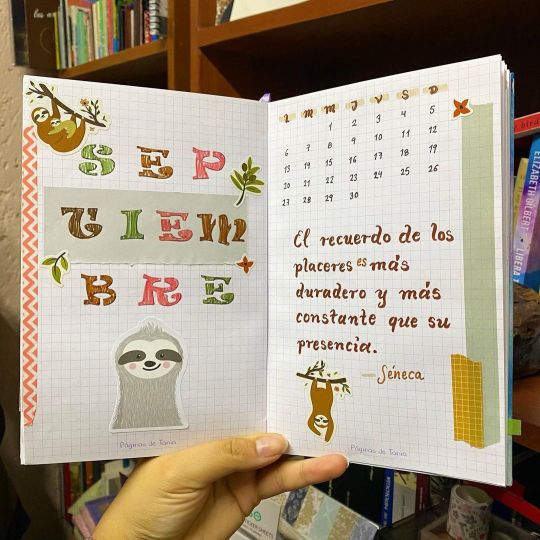 SEP
TIEM
BRE
Páginas de Tania
L M M J V S D
1 2 3 4 5
6 7 8 9 10 11 12
13 14 15 16 17 18 19
20 21 22 23 24 25 26
27 28 29 30
El recuerdo de los
placeres es más
duradero y más
constante que su
presencia.
— Séneca
Páginas de Tania
ELIZABETH GILBERT
LIBERA T
bird